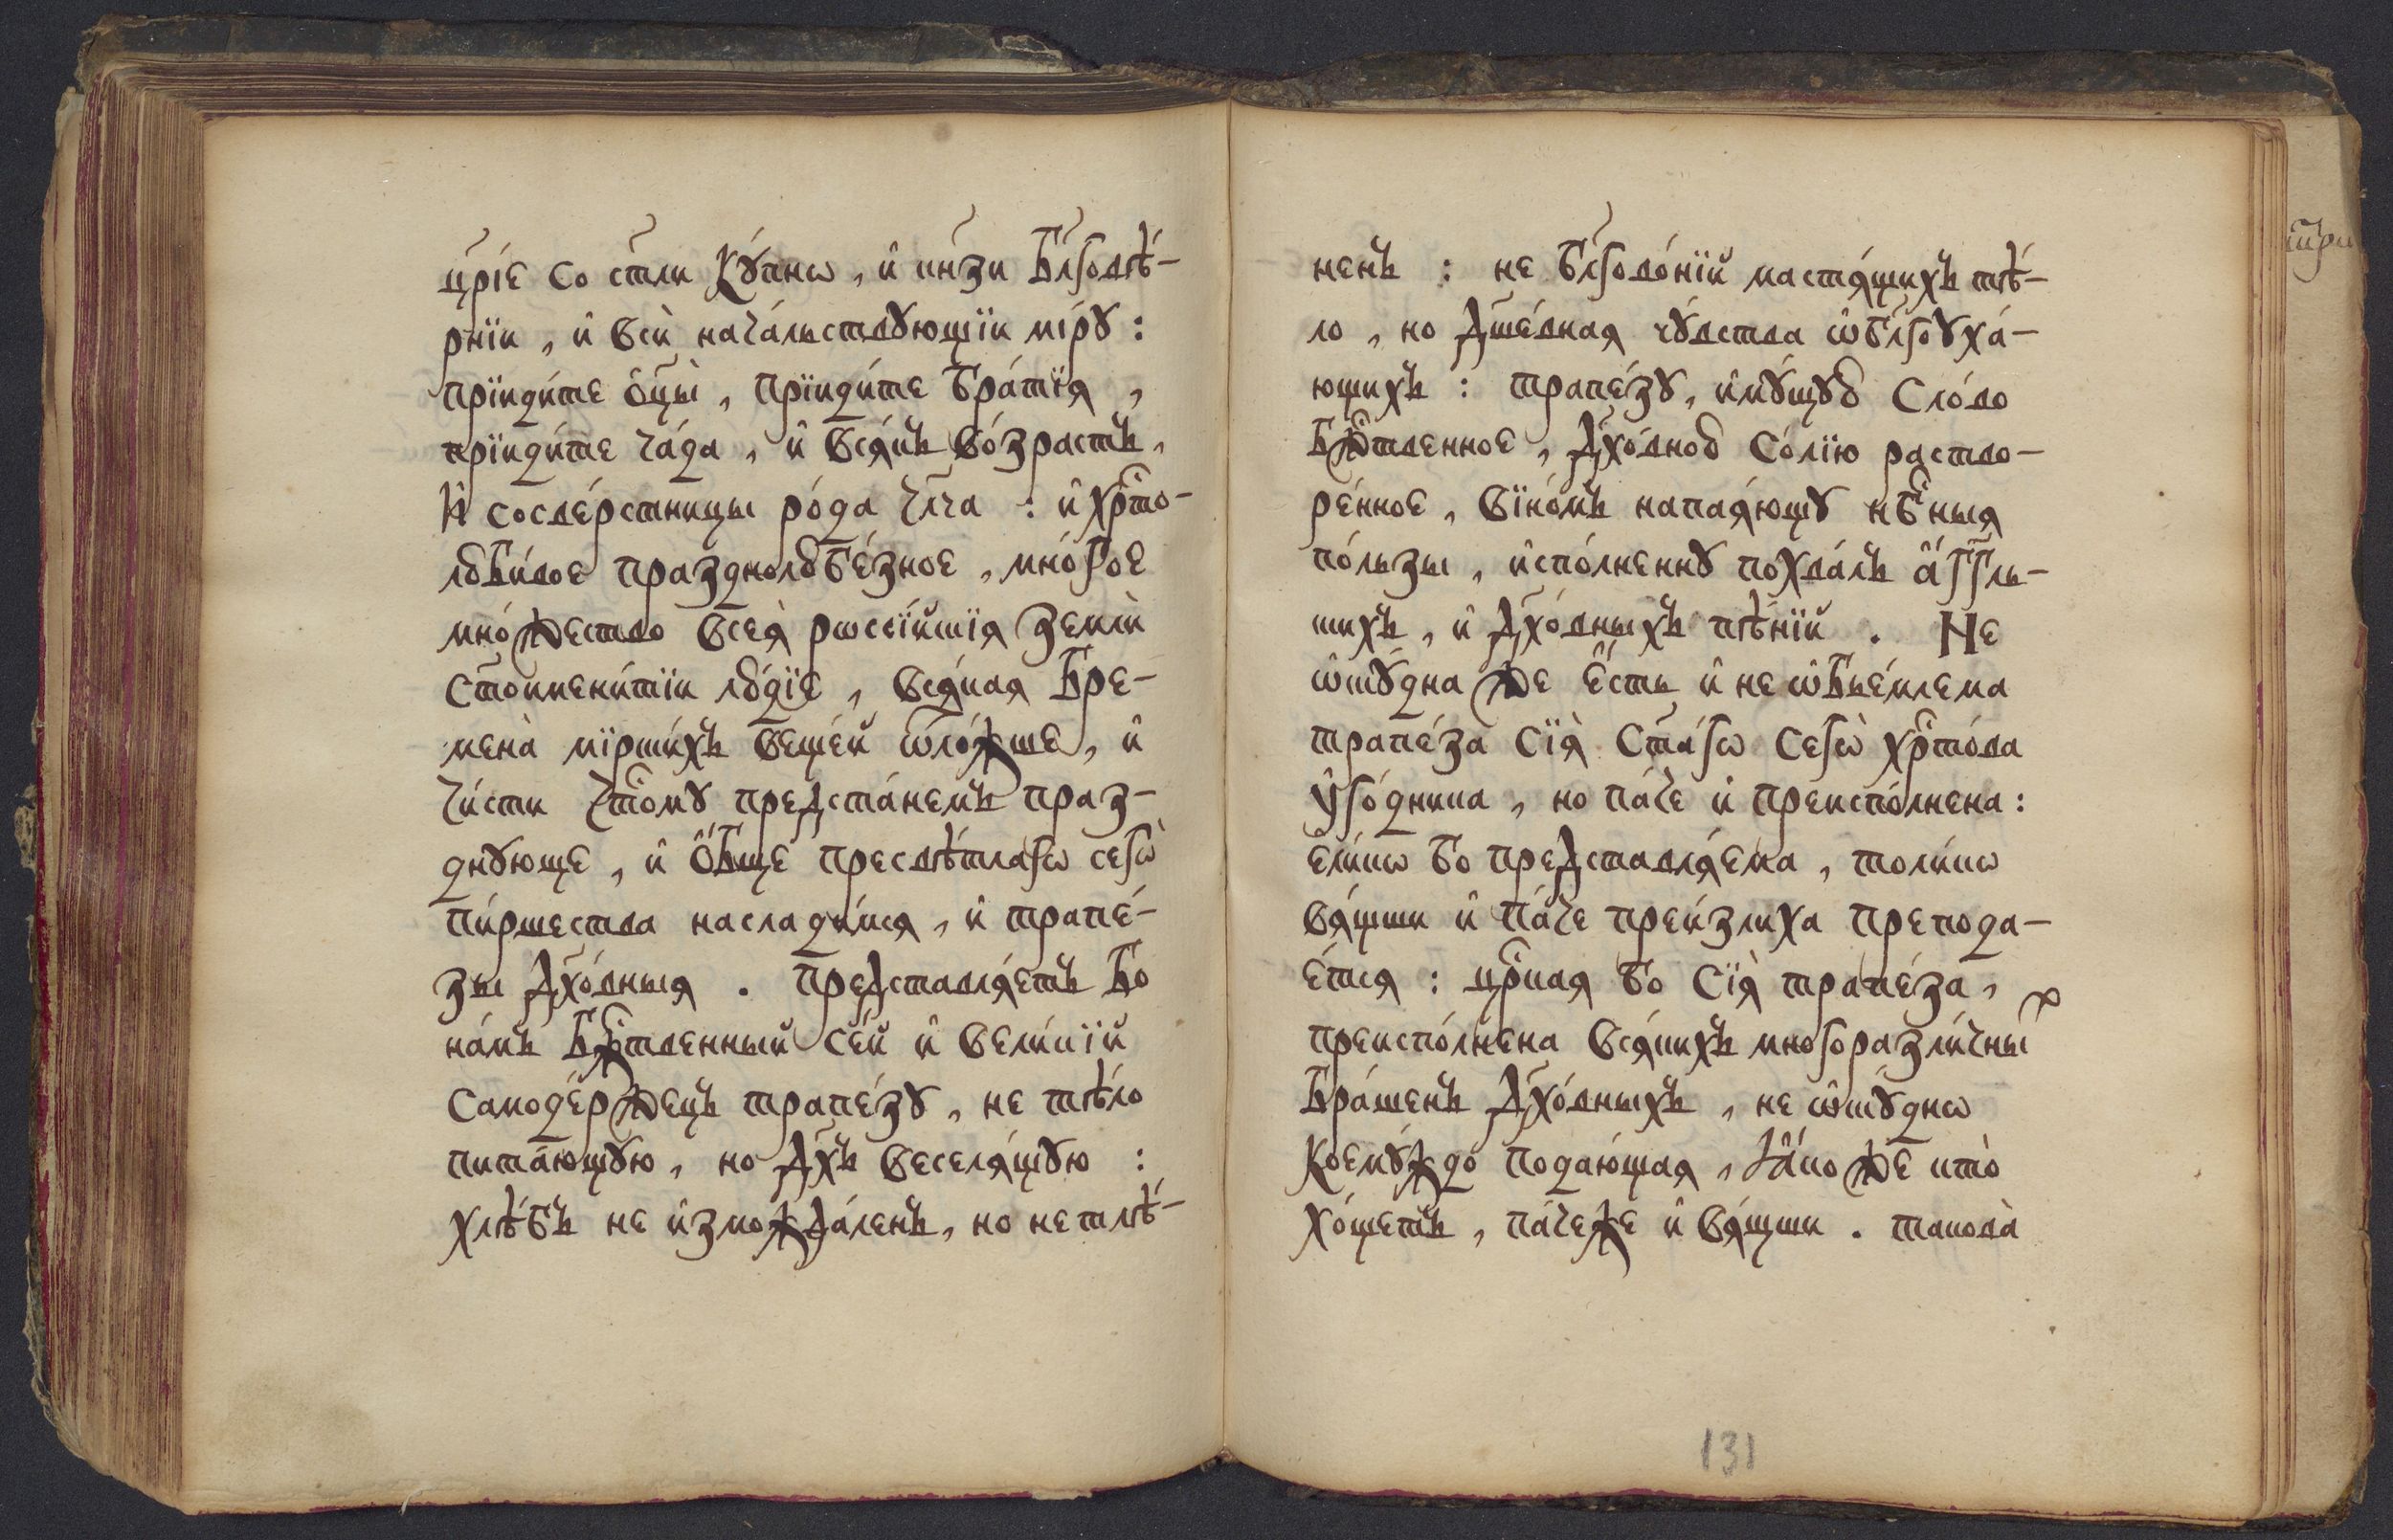 цр҃їе со ст҃ли кꙋ́пнѡ, и҆ кн҃зи бл҃говѣ́-
рнїи, и҆ всѝ нача́льствꙋющїи мі́рꙋ:
прїиди́те ѻ҆ц҃ы̀, прїиди́те бра́тїѧ,
прїиди́те ча́да, и҆ всѧ́къ во́зрастъ,
и҆ сосве́рстницы ро́да чл҃ча: и҆ хрⷭ҇то-
люби́вое празднолюбе́зное, мно́гое
мно́жество всеѧ̀ рѡссі́йскїѧ землѝ
сто́имени́тїи лю́дїе, всѧ́каѧ бре-
мена̀ мїрски́хъ веще́й ѿло́жше, и҆
чи́сти чⷭ҇тому предста́немъ праз-
днꙋюще, и҆ ѻ҆́бще пресвѣ́тлагѡ сегѡ̀
пи́ршества наслади́мсѧ, и҆ трапе́-
зы дх҃о́вныѧ. Представлѧ́етъ бо
на́мъ бж҃е́ственный се́й и҆ вели́кїй
самоде́ржецъ трапе́зꙋ, не тѣ́ло
пита́ющꙋю, но дх҃ъ веселѧ́щꙋю:
хлѣ́бъ не и҆зможда́ленъ, но нетлѣ́-
ненъ: не бл҃гово́нїй мастѧ́щихъ тѣ́-
ло, но дш҃е́внаѧ чꙋ́вства ѡ҆бл҃гоꙋха́-
ющихъ: трапе́зꙋ, и҆мꙋ́щꙋю сло́во
бж҃е́ственное, дх҃о́вною со́лїю раство-
ре́нное, вїно́мъ напаѧ́ющꙋ нбⷭ҇ныѧ
по́льзы, и҆спо́лненнꙋ похва́лъ а҆́гг҃ль-
скихъ, и҆ дх҃о́вныхъ пѣ́нїй. Не
ѡ҆скꙋ́дна же є҆́сть и҆ не ѡ҆бъе́млема
трапе́за сїѧ̀ ст҃а́гѡ сегѡ̀ хрⷭ҇то́ва
ᲂу҆го́дника, но па́че и҆ преиспо́лнена:
є҆ли́кѡ бо представлѧ́ема, толи́кѡ
вѧ́щши и҆ па́че преи́злиха препода-
е́тсѧ: црⷭ҇каѧ бо сїѧ̀ трапе́за,
преиспо́лнена всѧ́кихъ многоразли́чныⷯ
бра́шенъ дх҃о́вныхъ, не ѡ҆скꙋ́днѡ
коемꙋ́ждо подаю́щаѧ, ꙗ҆́коже кто̀
хо́щетъ, па́чеже и҆ вѧ́щши. такова̀
131